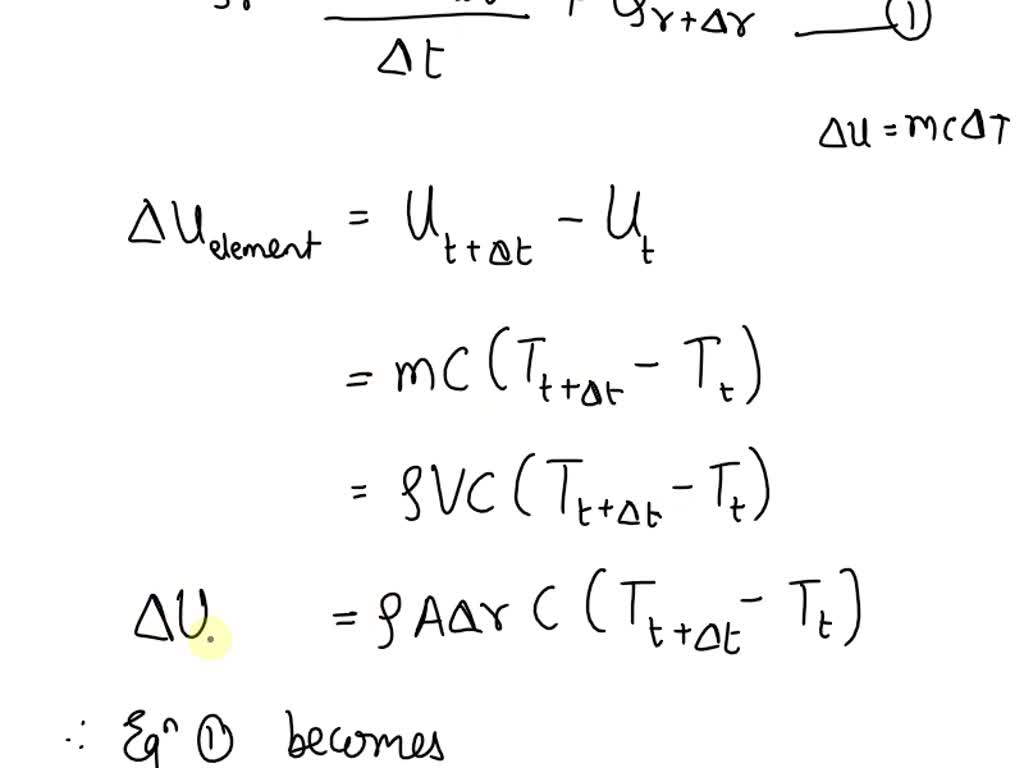 Δt + Q̇r+Δr ——— ①
ΔU = mCΔT
ΔUelement = Ut+Δt − Ut
= mC (Tt+Δt − Tt)
= ρVC (Tt+Δt − Tt)
ΔU = ρAΔr C (Tt+Δt − Tt)
∴ Eqⁿ ① becomes